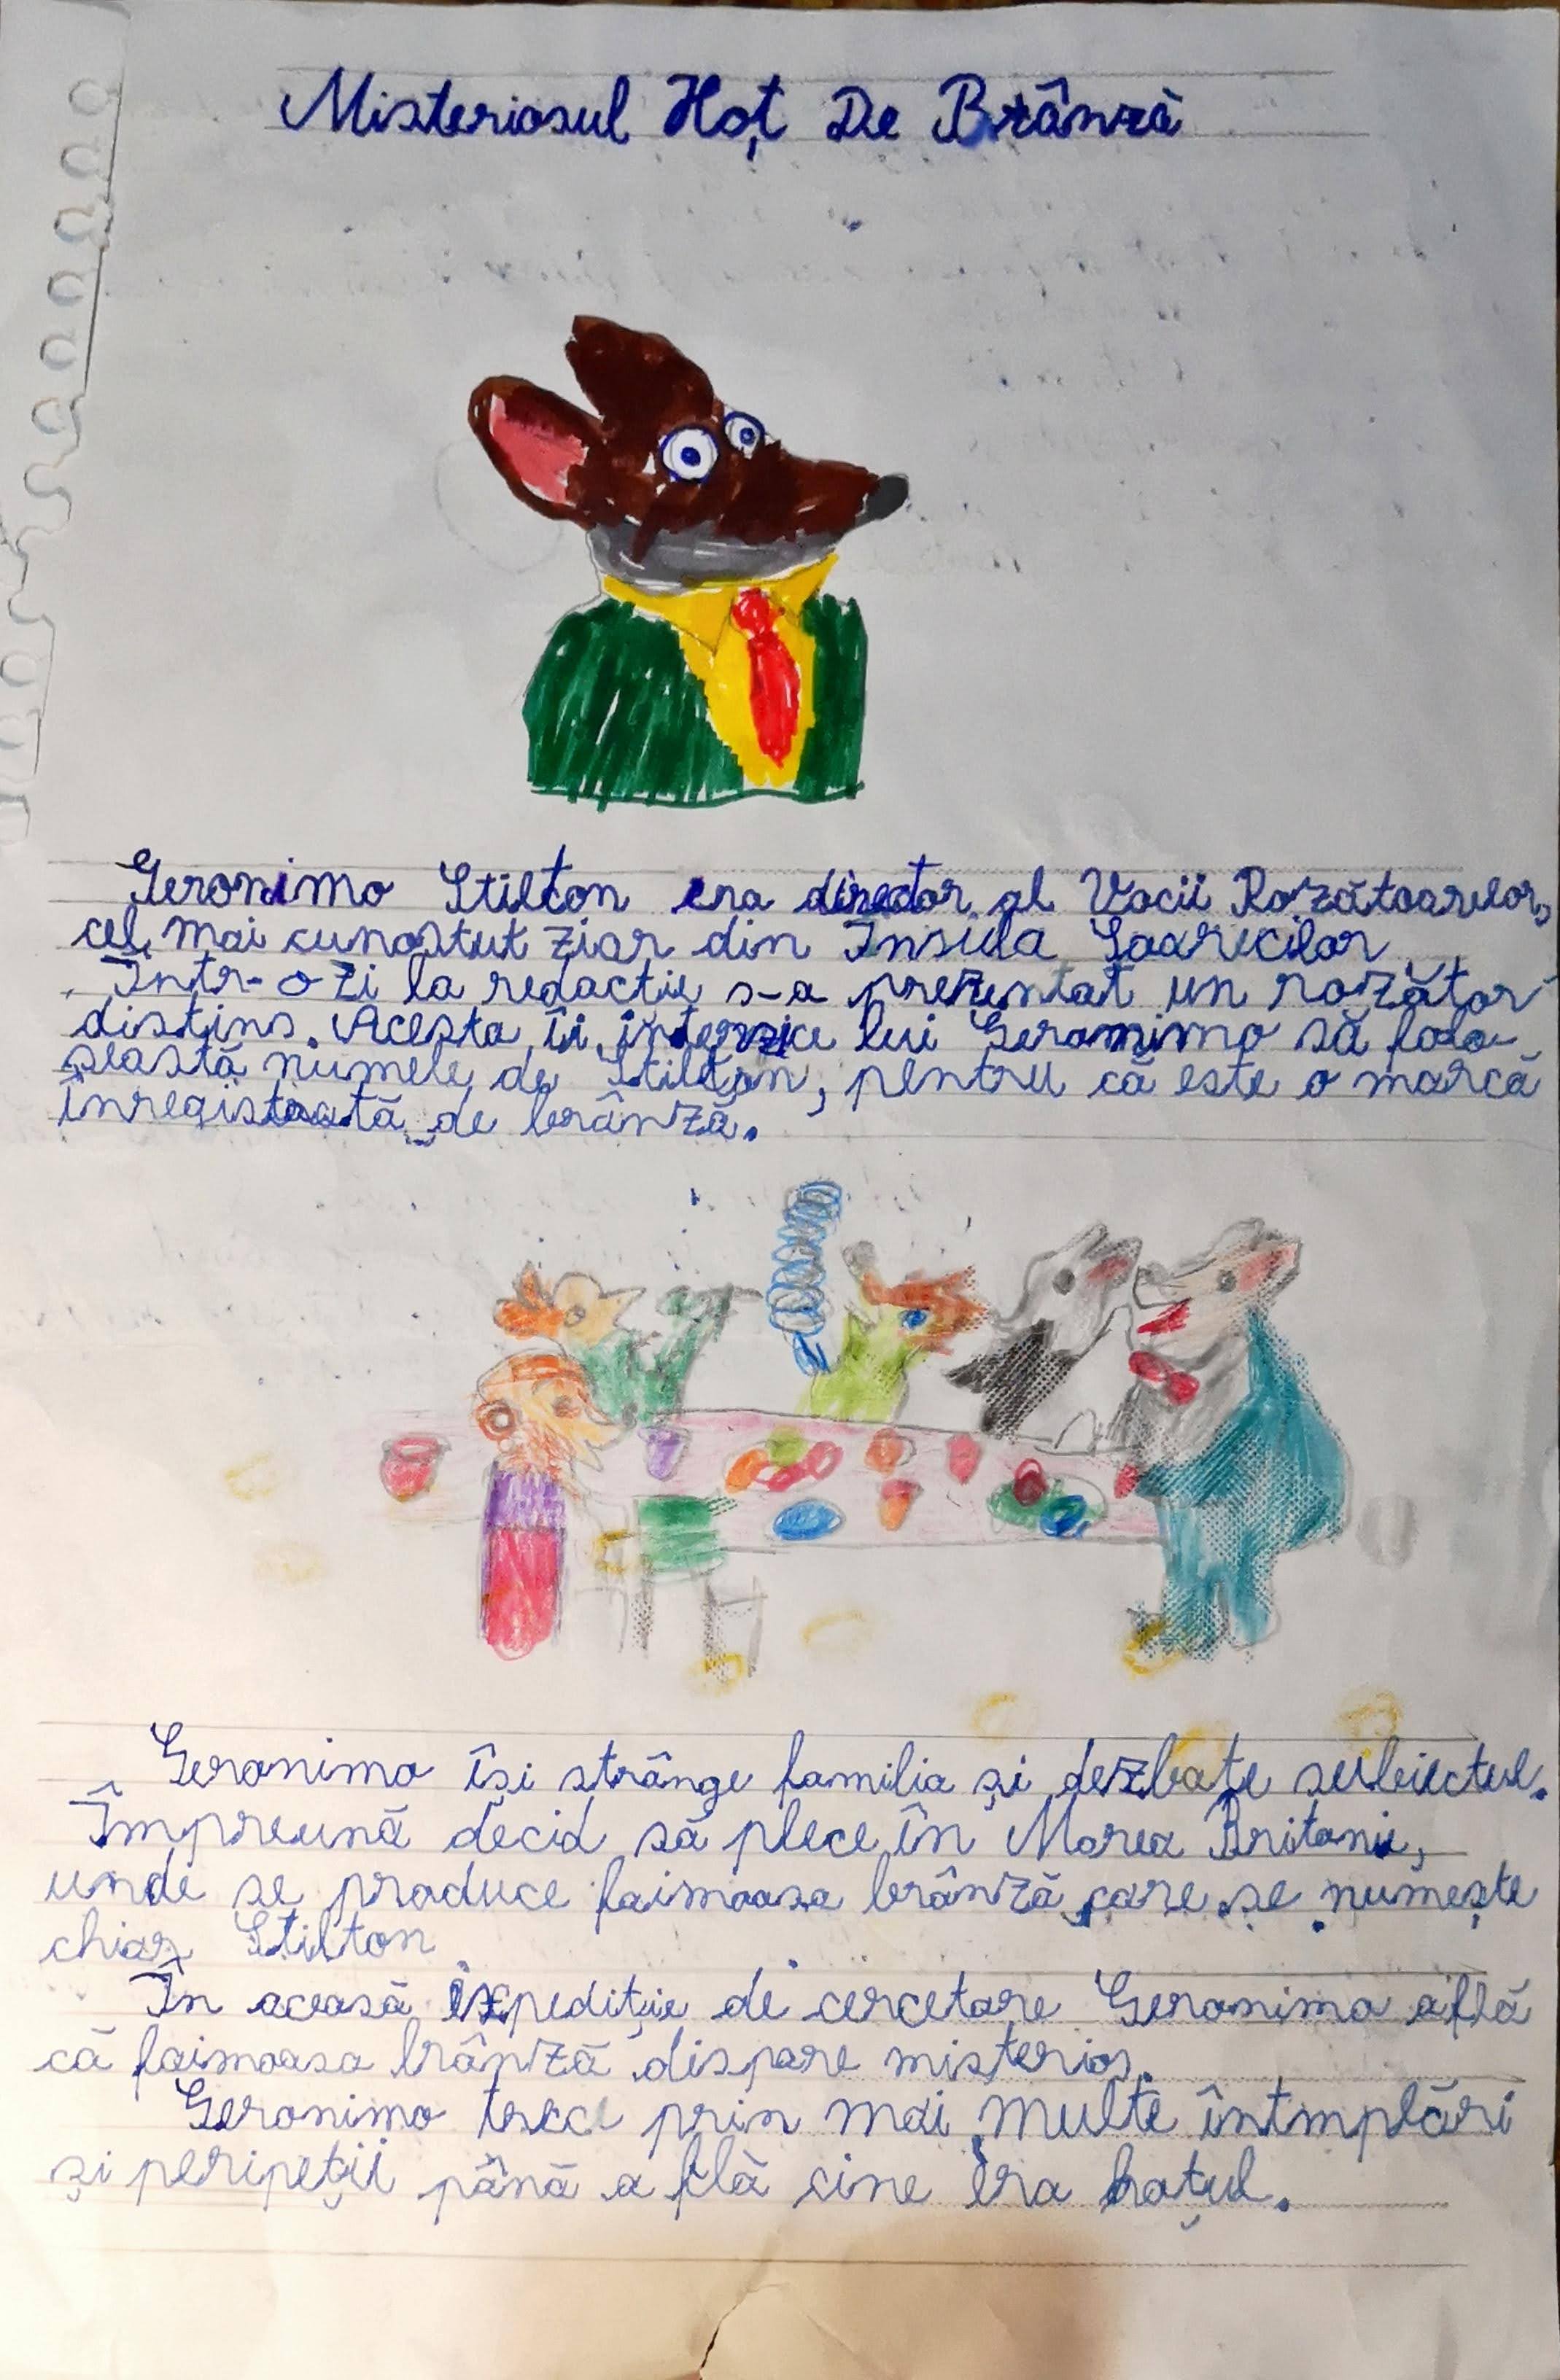 Misteriosul Hoț De Brânză
Geronimo Stilton era director al Vocii Rozătoarelor,
cel mai cunostut ziar din Însula Șoarecilor.
Într-o zi la redactie s-a prezentat un rozător
distins. Acesta îi interzice lui Geronimo să folo-
sească numele de Stilton, pentru că este o marcă
înregistrată de brânză.
Geronimo își strânge familia și dezbate subiectul.
Împreună decid să plece în Marea Britanie,
unde se produce faimoasa brânză care se numește
chiar Stilton
În aceasă expediție de cercetare Geronimo află
că faimoasa brânză dispare misterios.
Geronimo trece prin mai multe întmplări
și peripeții până a flă cine era hoțul.